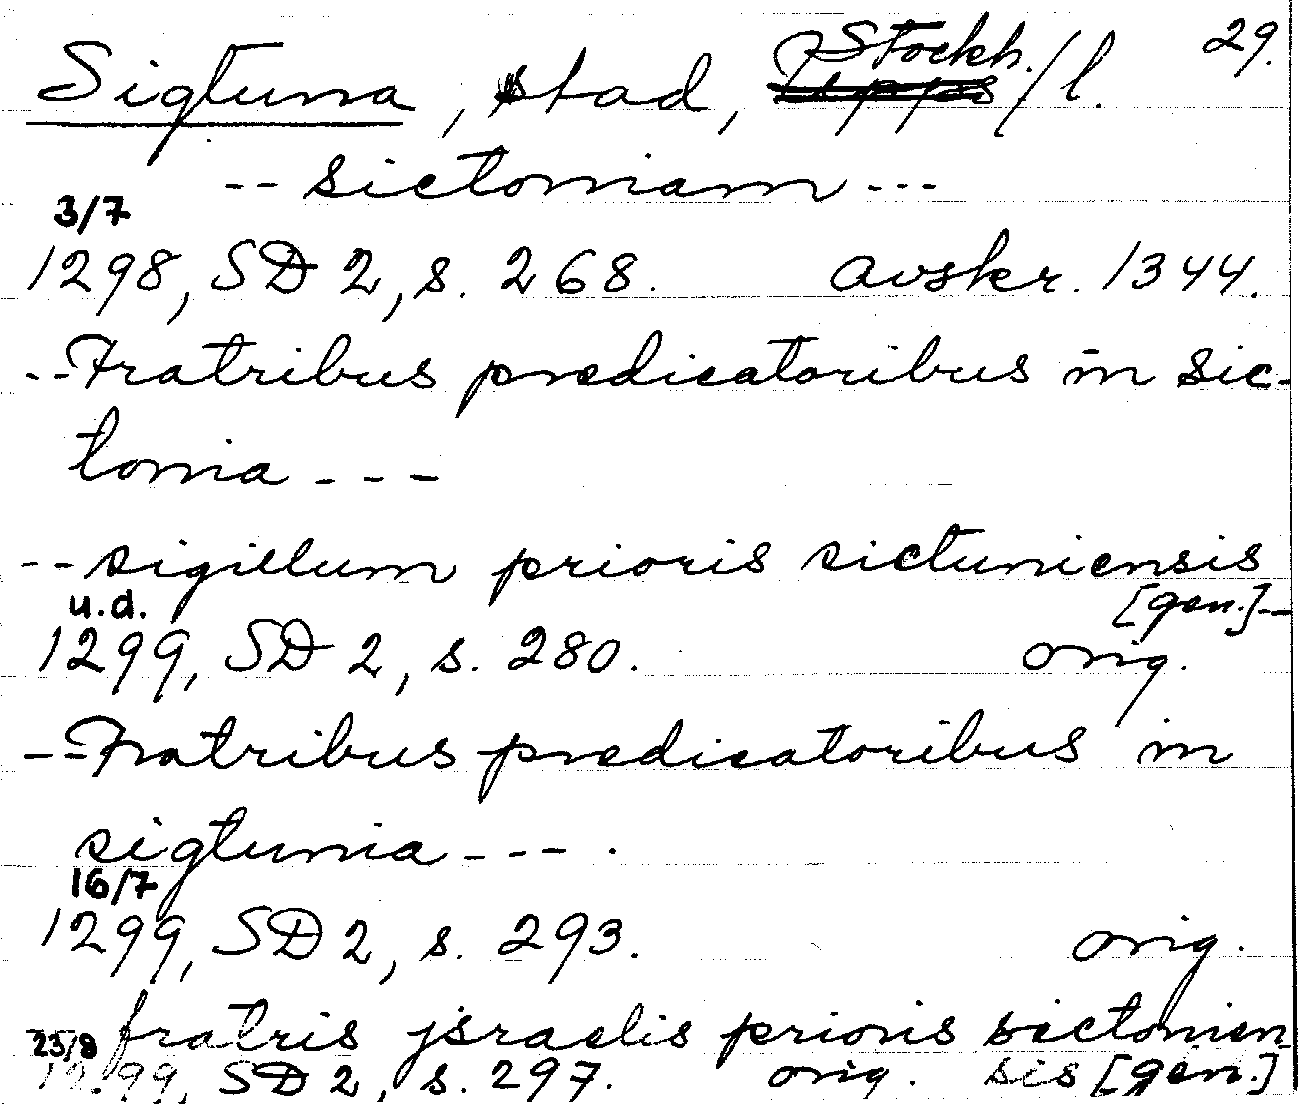 Sigtuna, stad, Stockh./l. 29.
-- sictoniam ---
3/7
1298, SD 2, s. 268. avskr. 1344.
-- Fratribus predicatoribus in Sic-
tonia ---
-- sigillum prioris sictuniensis
[gen.]--
u.d.
1299, SD 2, s. 280. orig.
-- Fratribus predicatoribus in
sigtunia ---.
16/7
1299, SD 2, s. 293. orig.
fratris jsraelis prioris sictonien-
23/8
1299, SD 2, s. 297. orig. sis [gen.]